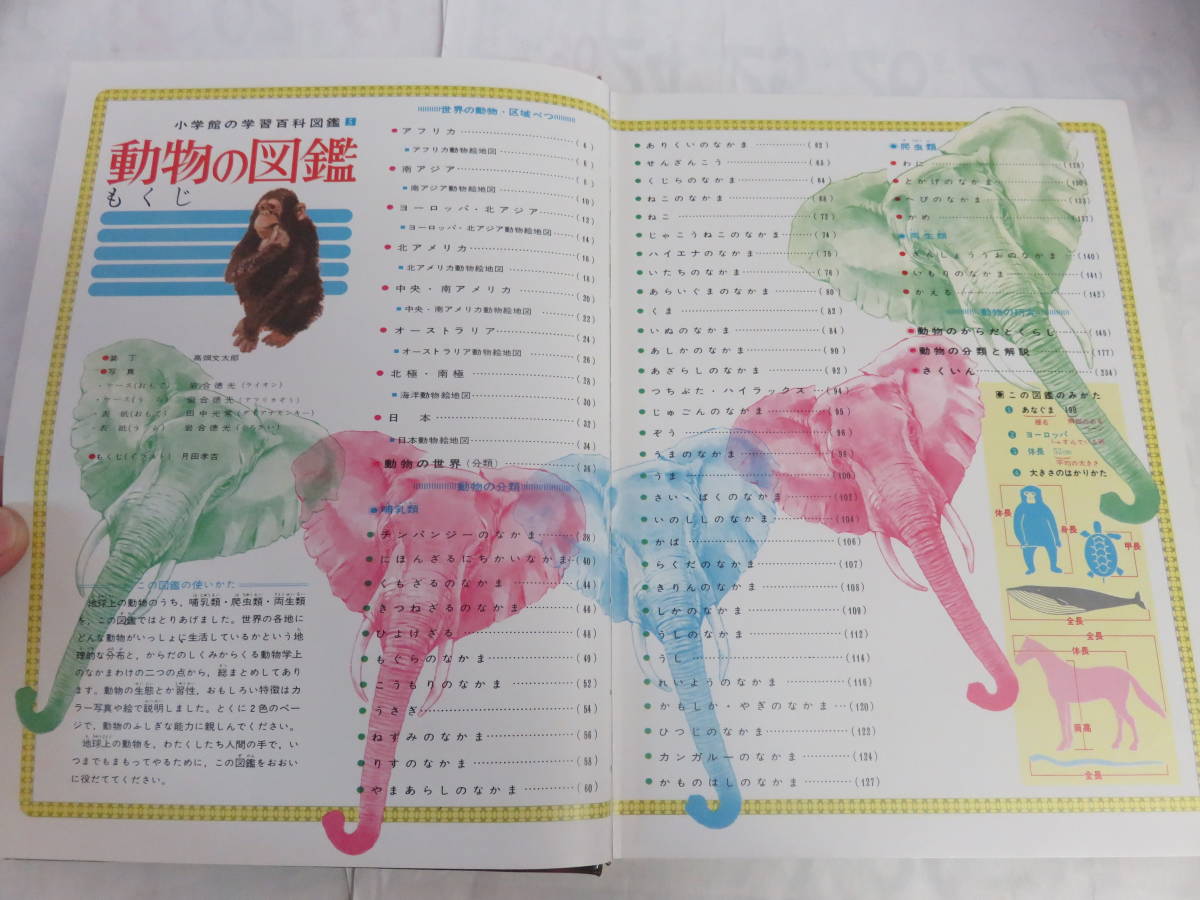 小学館の学習百科図鑑 5
動物の図鑑
もくじ
●装丁 高畑文太郎
●写真
・ケース(おもて) 岩合徳光(ライオン)
・ケース(うら) 岩合徳光(アフリカぞう)
・表紙(おもて) 田中光常
・表紙(うら) 岩合徳光
●もくじ(イラスト) 月田孝吉
この図鑑の使いかた
地球上の動物のうち,哺乳類・爬虫類・両生類
を,この図鑑ではとりあげました。世界の各地に
どんな動物がいっしょに生活しているかという地
理的な分布と,からだのしくみからくる動物学上
のなかまわけの二つの点から,総まとめしてあり
ます。動物の生態とか習性,おもしろい特徴はカ
ラー写真や絵で説明しました。とくに2色のペー
ジで,動物のふしぎな能力に親しんでください。
地球上の動物を,わたくしたち人間の手で,い
つまでもまもってやるために,この図鑑をおおい
に役だててください。
世界の動物・区域べつ
●アフリカ (4)
■アフリカ動物絵地図 (6)
●南アジア (8)
■南アジア動物絵地図 (10)
●ヨーロッパ・北アジア (12)
■ヨーロッパ・北アジア動物絵地図 (14)
●北アメリカ (16)
■北アメリカ動物絵地図 (18)
●中央・南アメリカ (20)
■中央・南アメリカ動物絵地図 (22)
●オーストラリア (24)
■オーストラリア動物絵地図 (26)
●北極・南極 (28)
■海洋動物絵地図 (30)
●日本 (32)
■日本動物絵地図 (34)
●動物の世界(分類) (36)
動物の分類
●哺乳類
●チンパンジーのなかま (38)
●にほんざるにちかいなかま (40)
●くもざるのなかま (44)
●きつねざるのなかま (46)
●ひよけざる (48)
●もぐらのなかま (49)
●こうもりのなかま (52)
●うさぎ (54)
●ねずみのなかま (56)
●りすのなかま (58)
●やまあらしのなかま (60)
●ありくいのなかま (62)
●せんざんこう (63)
●くじらのなかま (64)
●ねこのなかま (68)
●ねこ (72)
●じゃこうねこのなかま (74)
●ハイエナのなかま (76)
●いたちのなかま (78)
●あらいぐまのなかま (80)
●くま (82)
●いぬのなかま (84)
●あしかのなかま (90)
●あざらしのなかま (92)
●つちぶた・ハイラックス (94)
●じゅごんのなかま (95)
●ぞう (96)
●うまのなかま (98)
●うま (100)
●さい・ばくのなかま (102)
●いのししのなかま (104)
●かば (106)
●らくだのなかま (107)
●きりんのなかま (108)
●しかのなかま (109)
●うしのなかま (112)
●うし (114)
●れいようのなかま (116)
●かもしか・やぎのなかま (120)
●ひつじのなかま (122)
●カンガルーのなかま (124)
●かものはしのなかま (127)
●爬虫類
●わに (128)
●とかげのなかま (130)
●へびのなかま (133)
●かめ (137)
●両生類
●さんしょううおのなかま (140)
●いもりのなかま (141)
●かえる (142)
●動物のからだとくらし (145)
●動物の分類と解説 (177)
●さくいん (204)
この図鑑のみかた
1 あなぐま 109
種名
2 ヨーロッパ
3 体長 52cm
平均の大きさ
4 大きさのはかりかた
体長
身長
甲長
全長
体長
肩高
全長